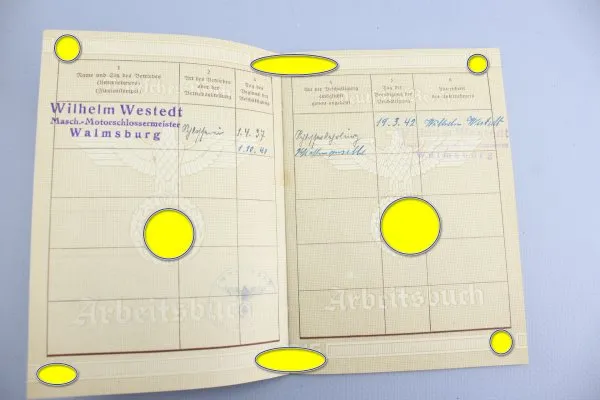 1
Name und Sitz des Betriebes
(Unternehmers)
(Firmenstempel)
2
Art des Betriebes
oder der
Betriebsabteilung
3
Tag des
Beginns der
Beschäftigung
Wilhelm Westedt
Masch.-Motorschlossermeister
Walmsburg
1.4.37
1.10.41
Arbeitsbuch
4
Art der Beschäftigung
(möglichst
genau angeben)
5
Tag der
Beendigung der
Beschäftigung
6
Unterschrift
des Unternehmers
19.3.42
Wilhelm Westedt
Walmsburg
Arbeitsbuch